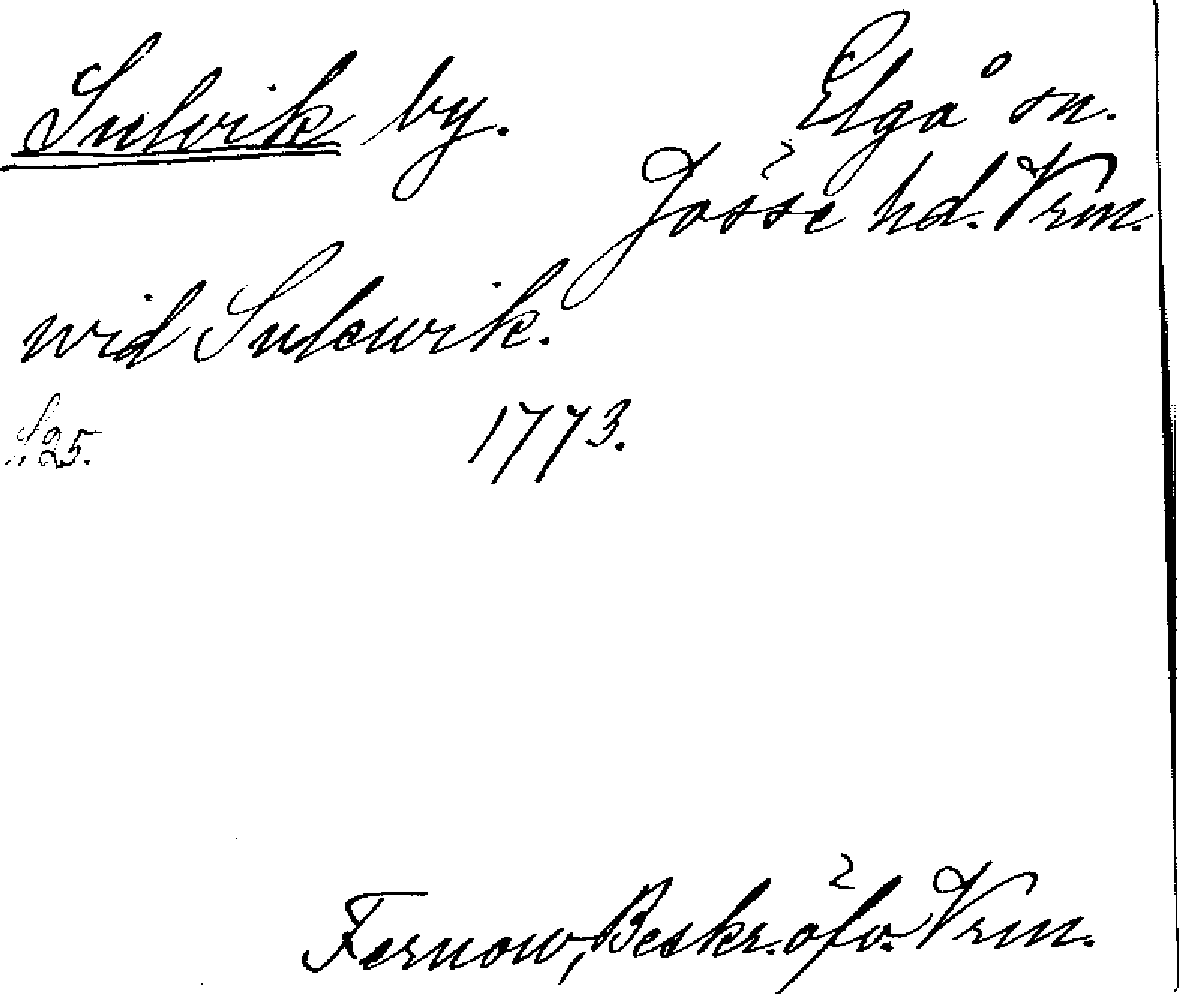 Sulvik by. Elgå sn.
Jösse hd. Vrm.
wid Sulewik.
S. 25. 1773.
Fernow, Beskr. öfv. Vrm.